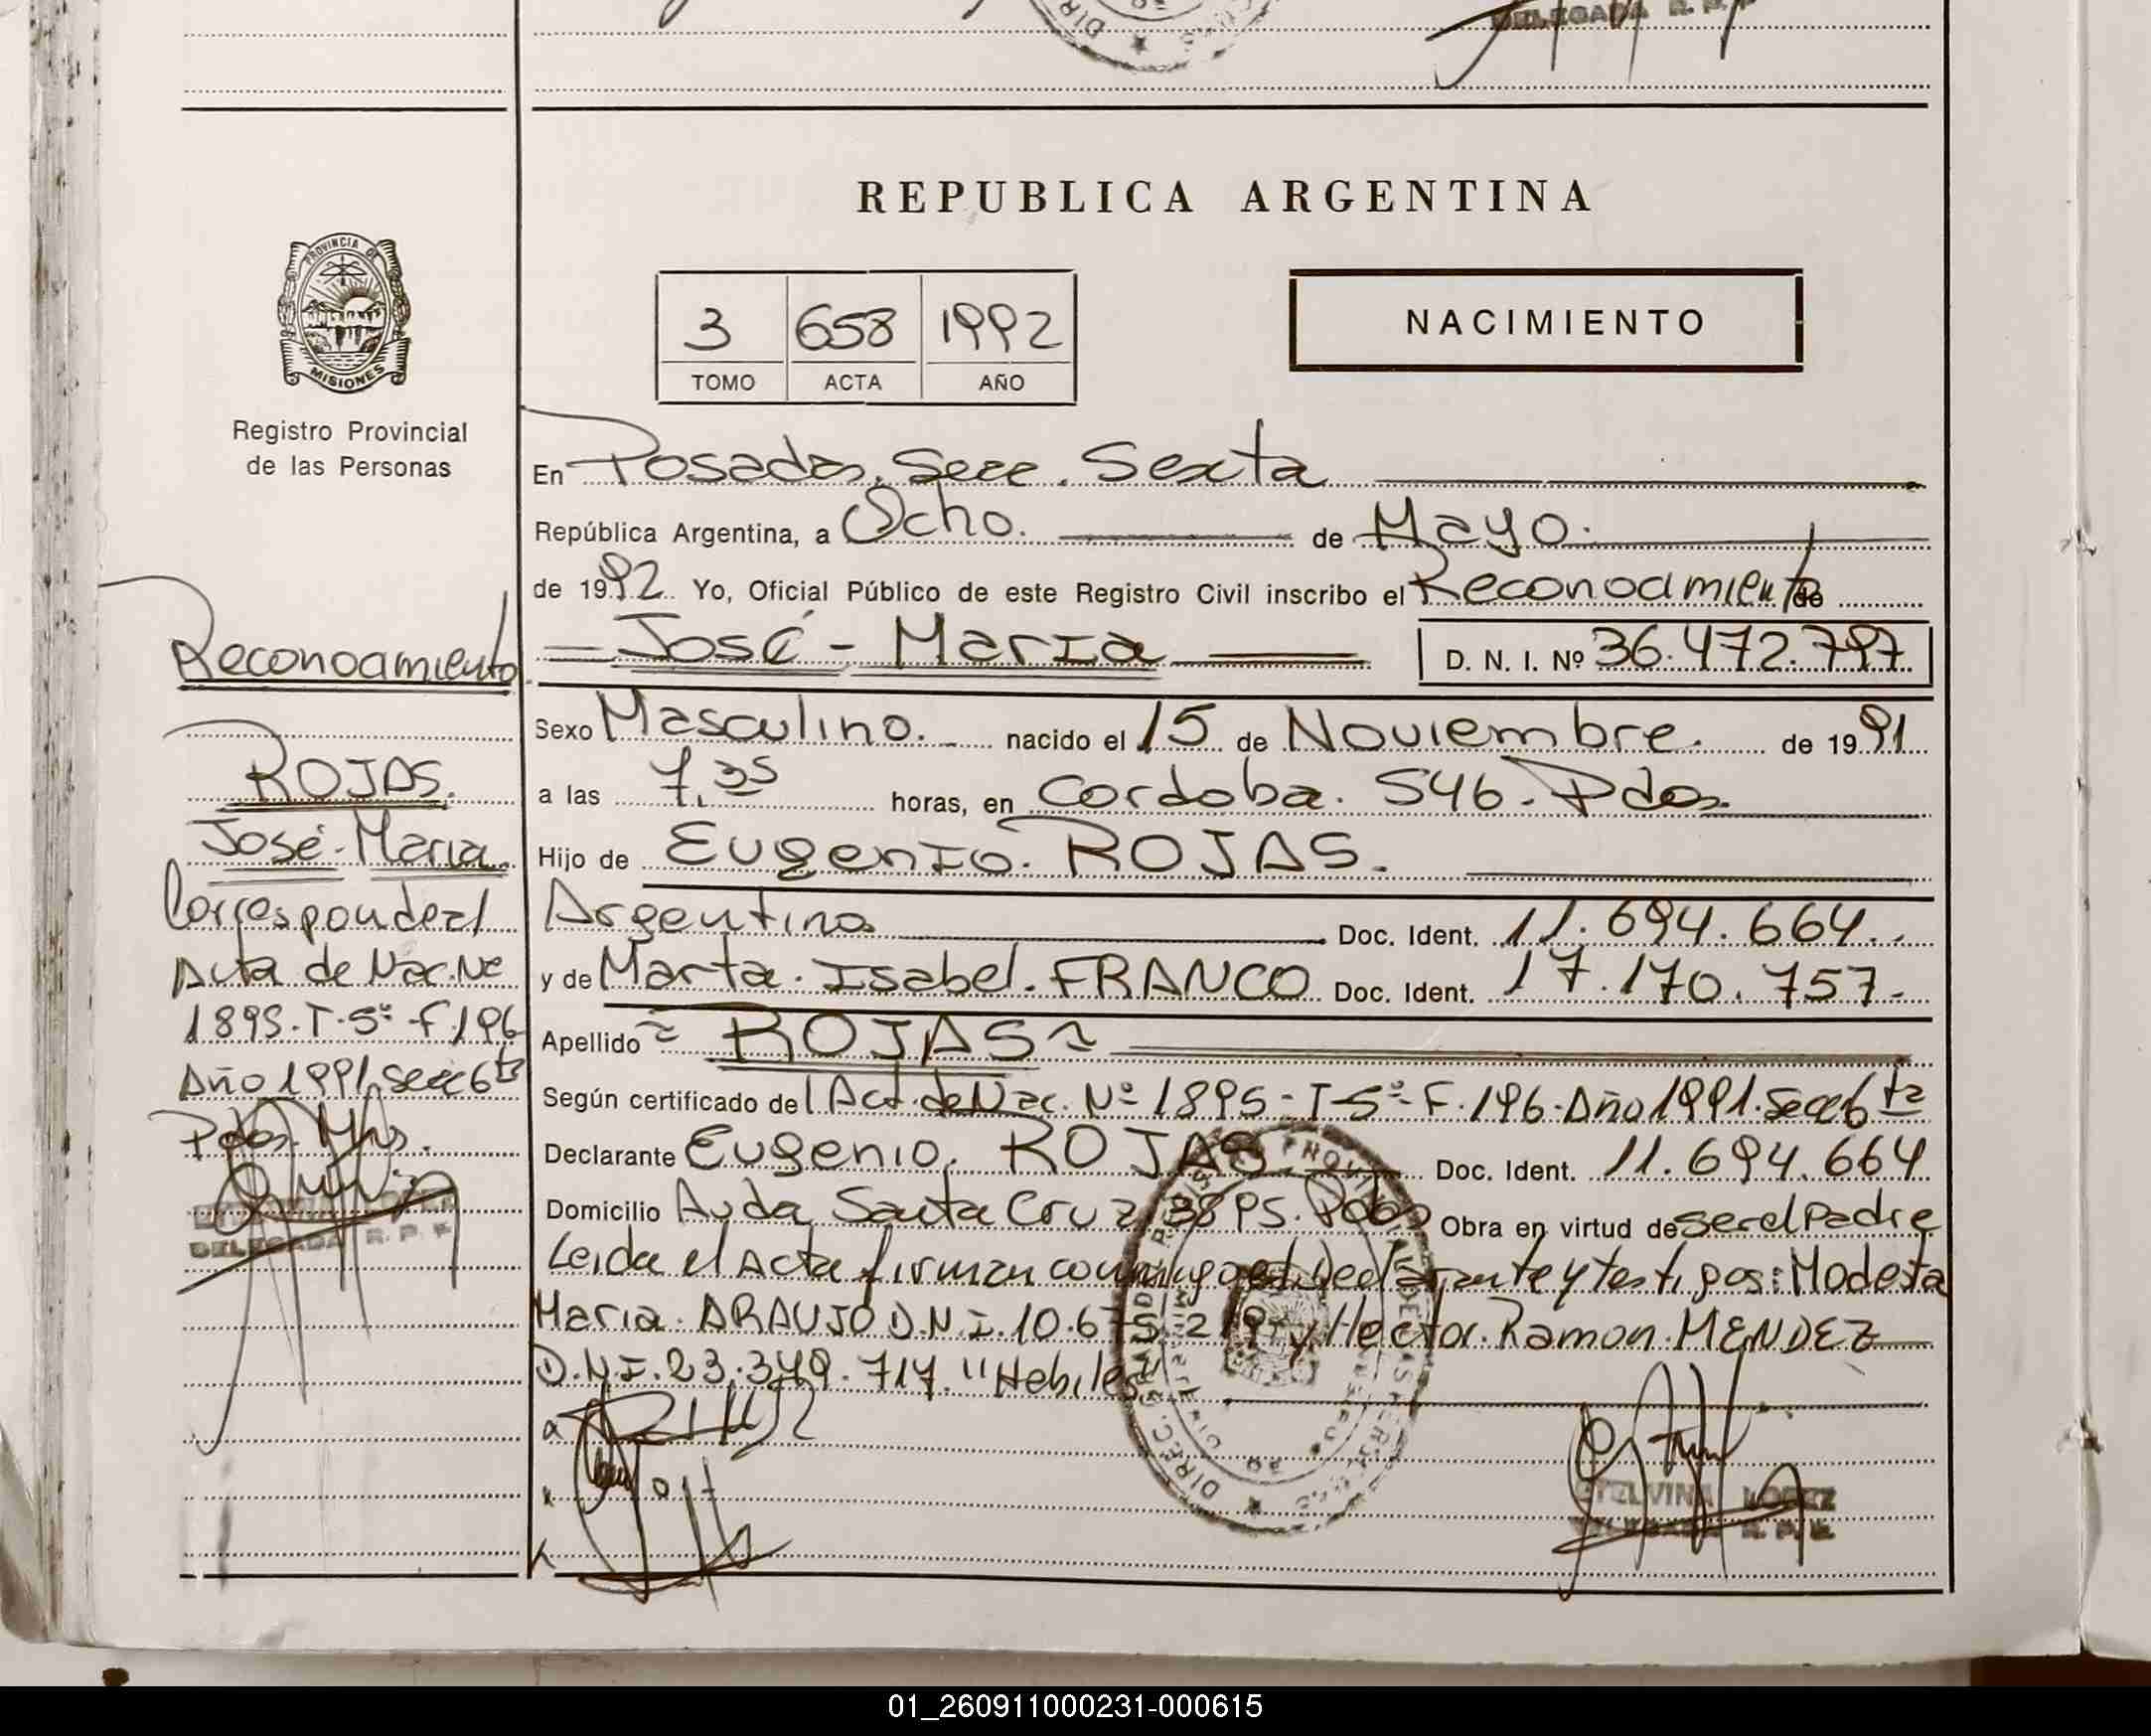 DELEGADA R. P. P.
REPUBLICA ARGENTINA
PROVINCIA DE
MISIONES
Registro Provincial
de las Personas
3 658 1992
TOMO ACTA AÑO
NACIMIENTO
En Posadas, Secc. Sexta
República Argentina, a Ocho. de Mayo.
de 1992 Yo, Oficial Público de este Registro Civil inscribo el Reconocimiento de
José - Maria D. N. I. Nº 36.472.797
Sexo Masculino. nacido el 15 de Noviembre. de 1991
a las 7,35 horas, en Cordoba. 546. Pdas.
Hijo de Eugenio. ROJAS.
Argentino Doc. Ident. 11.694.664.
y de Marta. Isabel. FRANCO Doc. Ident. 17.170.757.
Apellido = ROJAS =
Según certificado del Act. de Nac. Nº 1895 - T-5º- F.196. Año 1991. Secc 6ta
Declarante Eugenio. ROJAS Doc. Ident. 11.694.664
Domicilio Avda Santa Cruz 3895. Pdas Obra en virtud de ser el Padre
Leida el Acta firman conmigo el Declarante y testigos: Modesta
Maria. ARAUJO D.N.I. 10.675.219 y Hector. Ramon. MENDEZ
D.N.I. 23.349.717. "Habiles"
ETELVINA LOPEZ
DELEGADA R. P. P.
Reconocimiento
ROJAS.
José - Maria.
Corresponde al
Acta de Nac. Nº
1895. T-5º-F.196
Año 1991. Secc 6ta
Pdas. Mns.
ETELVINA LOPEZ
DELEGADA R. P. P.
01_260911000231-000615